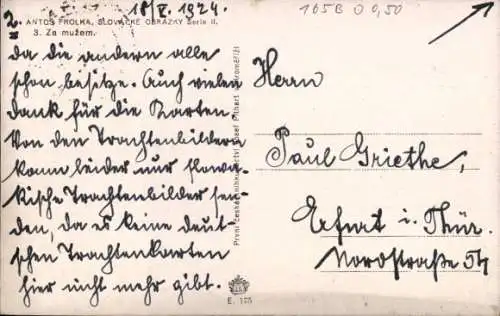 2. 18/V. 1924. 165B 0 0,50
ANTOŠ FROLKA, SLOVÁCKÉ OBRÁZKY Serie II.
3. Za mužem.
da die andern alle
schon besitze. Auch vielen
dank für die Karten
Von den Trachtenbildern
kann leider nur slowa-
kische Trachtenbilder sen-
den, da es keine deut-
schen Trachtenkarten
hier nicht mehr gibt.
E. 175
Josef Pithart, Kroměříž
Herrn
Paul Griethe,
Erfurt i. Thür.
Nordstraße 54